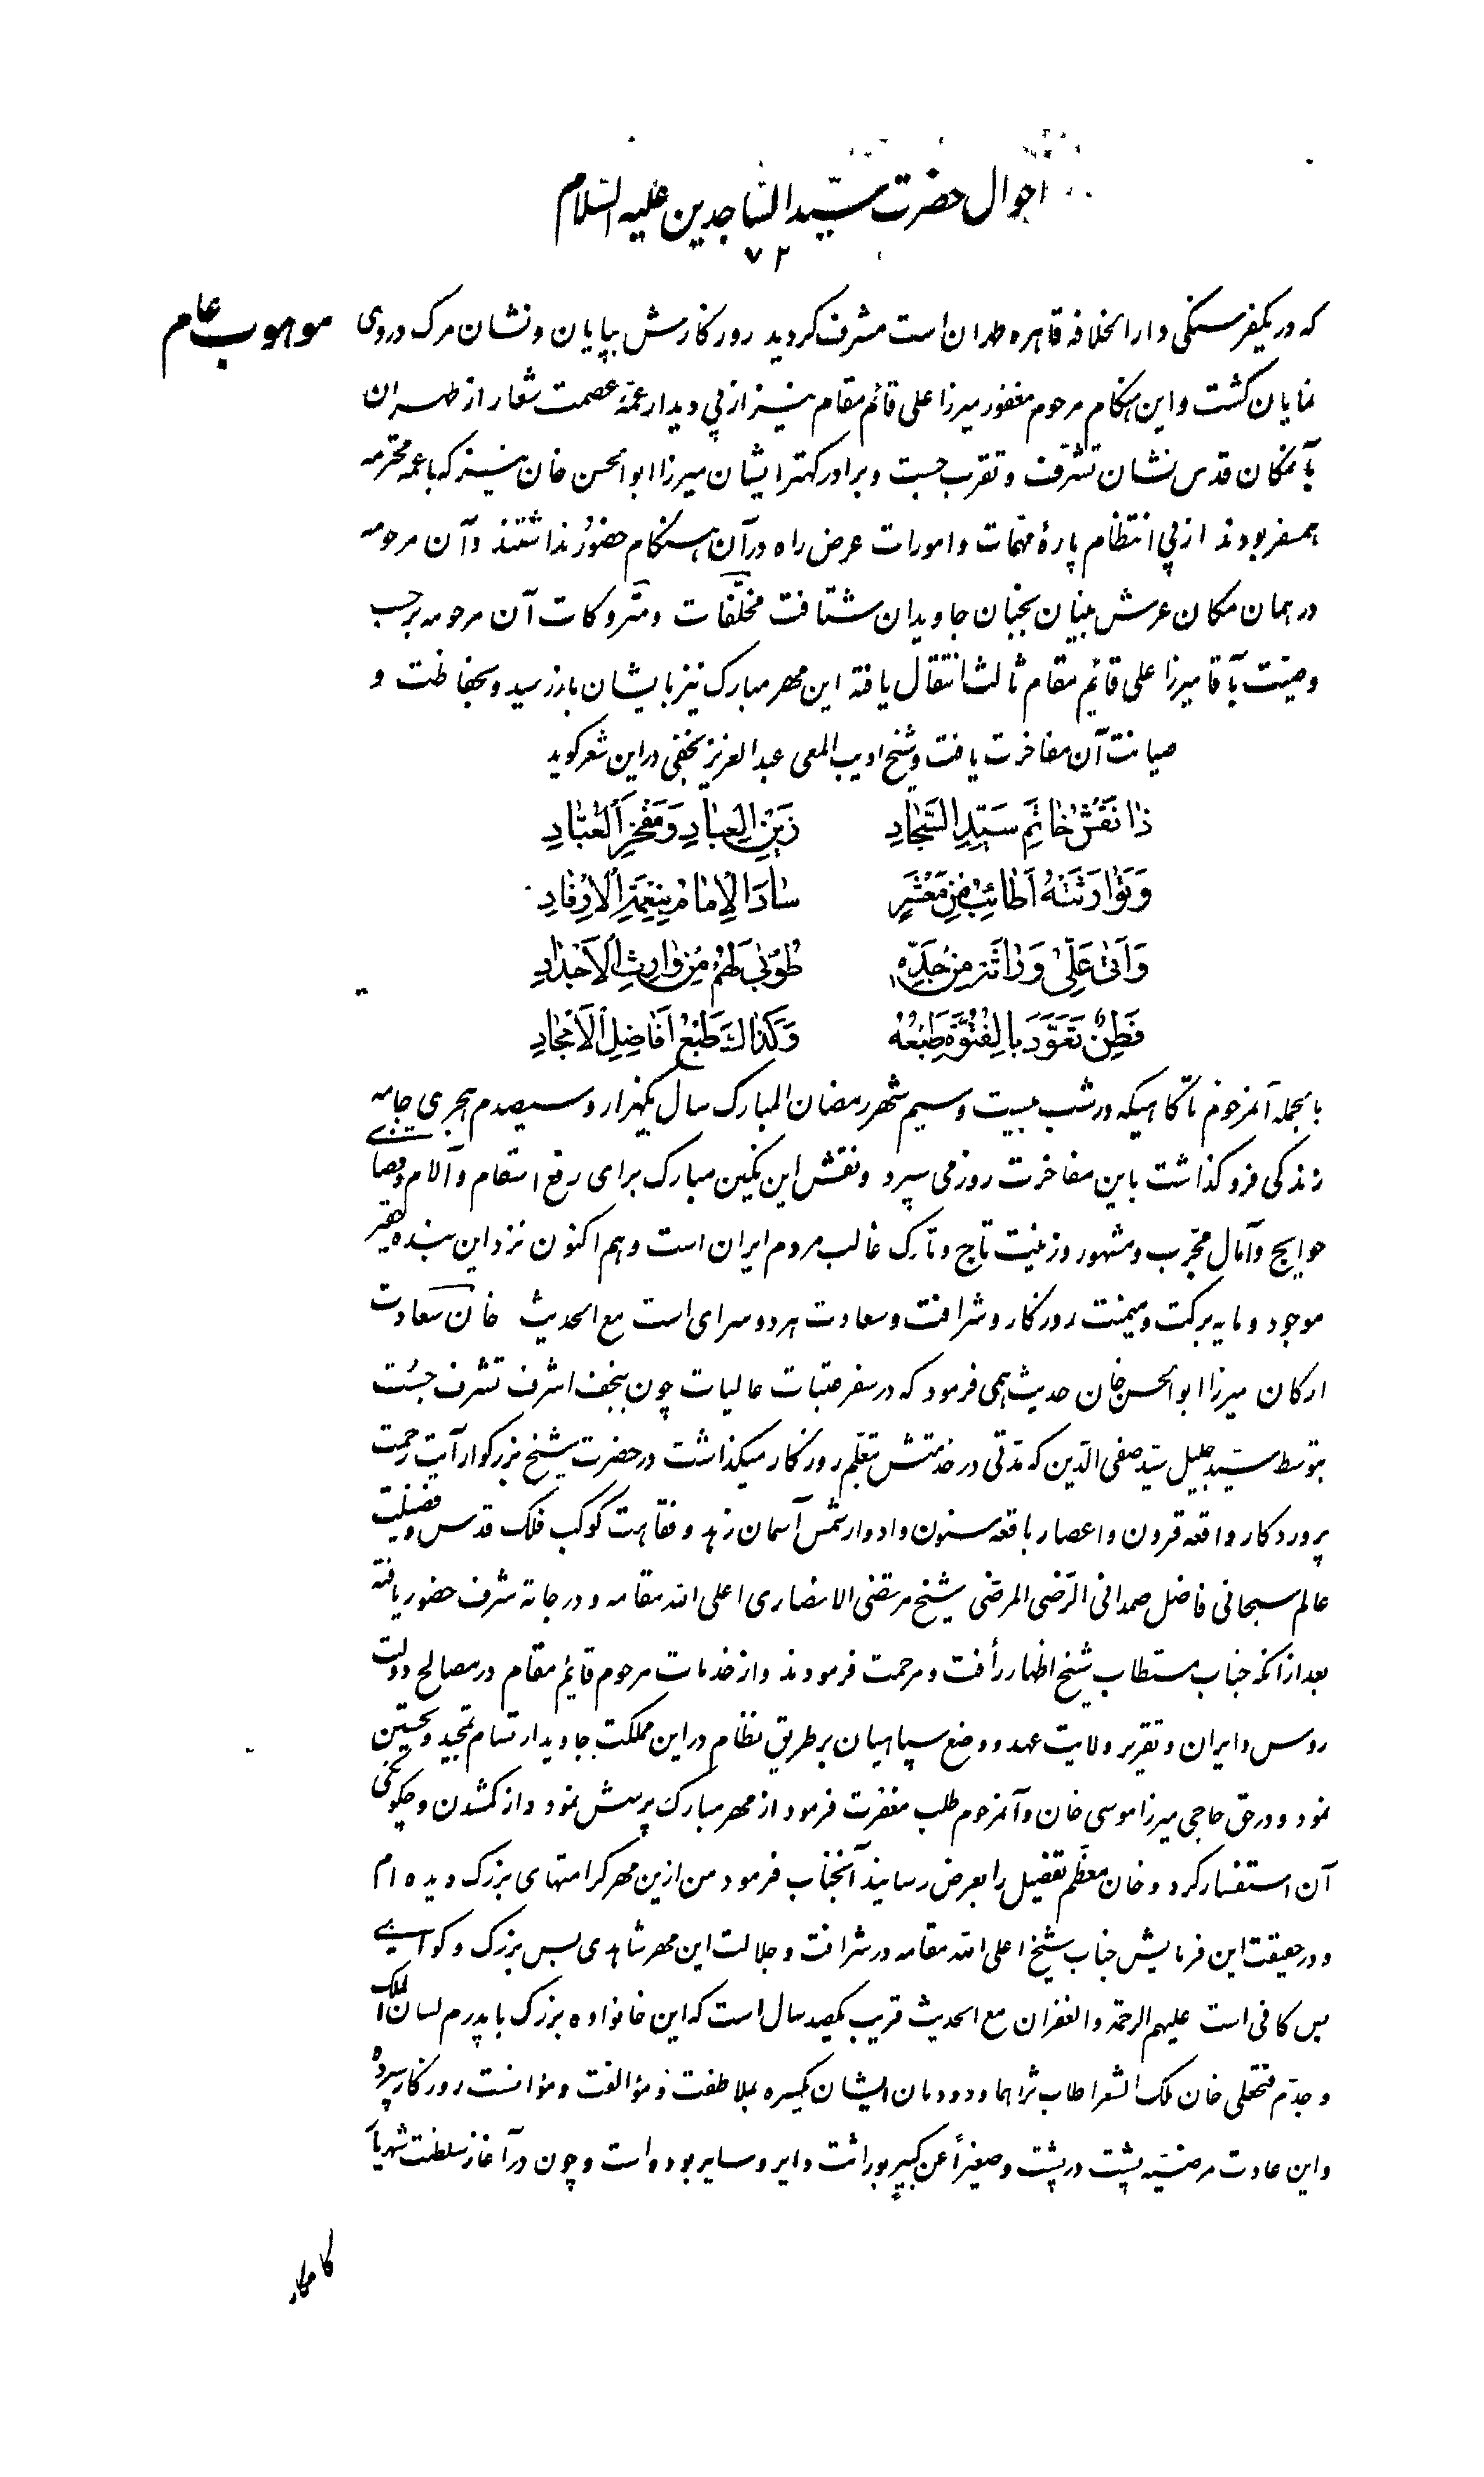 احوال حضرت سیّد السّاجدین علیه السّلام
۷۲
موهوب عام
که در یکفرسنگی دار الخلافه قاهره طهران است مشرف کردید روزکارش بپایان و نشان مرک در وی
نمایان کشت و این هنکام مرحوم مغفور میرزا علی قائم مقام نیز از پی دیدار عمّهٔ عصمت شعار از طهران
بآنمکان قدس نشان تشرّف و تقرب جست و برادر کهتر ایشان میرزا ابوالحسن خان نیز که با عمه محترمه
همسفر بودند از پی انتظام پارهٔ مهمّات و امورات عرض راه در آن هنکام حضور نداشتند و آن مرحومه
در همان مکان عرش بنیان بجنان جاویدان شتافت مخلّفات و متروکات آن مرحومه برحسب
وصیّت بآقا میرزا علی قائم مقام ثالث انتقال یافته این مهر مبارک نیز بایشان باز رسید و بحفاظت و
صیانت آن مفاخرت یافت و شیخ ادیب المعی عبد العزیز نجفی در این شعر کوید
ذا نَقشُ خاتَمِ سَیّدِ السَّجّادِ زَینِ العِبادِ وَ مَفخَرِ العُبّادِ
وَ تَوارَثَتهُ اَطائِبٌ مِن مَعشَرٍ سادَ الاَمامُ بِنِعمَةِ الاَرفادِ
وَ اَتی عَلِیٌّ وَراثَةً مِن جَدِّه طُوبی لَهُم مِن وارِثِ الاَجدادِ
فَطِنٌ تَعَوَّدَ بِالفُتُوَّةِ طَبعُهُ وَ کَذاکَ طَبعُ اَفاضِلِ الاَمجادِ
بالجمله آنمرحوم تا کاهیکه در شب بیست و سیم شهر رمضان المبارک سال یکهزار و سیصدم هجری جامه
زندکی فرو کذاشت باین مفاخرت روز می سپرد و نقش این نکین مبارک برای رفع اسقام و آلام و قضای
حوایج و آمال مجرّب و مشهور و زینت تاج و تارک غالب مردم ایران است و هم اکنون نزد این بنده حقیر
موجود و مایه برکت و میمنت روزکار و شرافت و سعادت هر دو سرای است مع الحدیث خان سعادت
ارکان میرزا ابوالحسن خان حدیث همی فرمود که در سفر عتبات عالیات چون بنجف اشرف تشرف جست
بتوسط سیّد جلیل سیّد صفی الدّین که مدّتی در خدمتش بتعلّم روزکار میکذاشت در حضرت شیخ بزرکوار آیت رحمت
پروردکار واقعه قرون و اعصار باقعه سنون و ادوار شمس آسمان زهد و فقاهت کوکب فلک قدس و فضیلت
عالم سبحانی فاضل صمدانی الرّضی المرضی شیخ مرتضی الانصاری اعلی الله مقامه و درجاته شرف حضور یافته
بعد از انکه جناب مستطاب شیخ اظهار رأفت و مرحمت فرمودند و از خدمات مرحوم قایم مقام در مصالح دولت
روس و ایران و تقریر ولایت عهد و وضع سپاهیان بر طریق نظام در این مملکت جاوید ارتسام تمجید و تحسین
نمود و در حق حاجی میرزا موسی خان و آنمرحوم طلب مغفرت فرمود از مهر مبارک پرسش نمود و از کمشدن و چکونکی
آن استفسار کرد و خان معظّم تفصیل را بعرض رسانید آنجناب فرمود من ازین مهر کرامتهای بزرک دیده ام
و در حقیقت این فرمایش جناب شیخ اعلی الله مقامه در شرافت و جلالت این مهر شاهدی بس بزرک و کواهی
بس کافی است علیهم الرحمة و الغفران مع الحدیث قریب یکصد سال است که این خانواده بزرک با پدرم لسان الملک
و جدّم فتحعلی خان ملک الشعرا طاب ثراهما و دودمان ایشان یکسره بملاطفت و مؤالفت و مؤانست روزکار سپرده
و این عادت مرضیّه پشت در پشت و صغیراً عن کبیرٍ بوراثت دایر و سایر بوده است و چون در آغاز سلطنت شهریار
کامکار